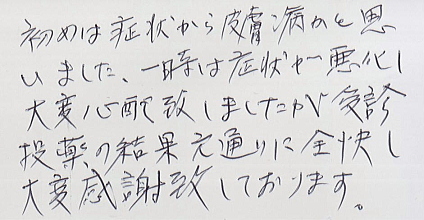 初めは症状から皮膚病かと思
いました、一時は症状が悪化し
大変心配致しましたが受診
投薬の結果元通りに全快し
大変感謝致しております。